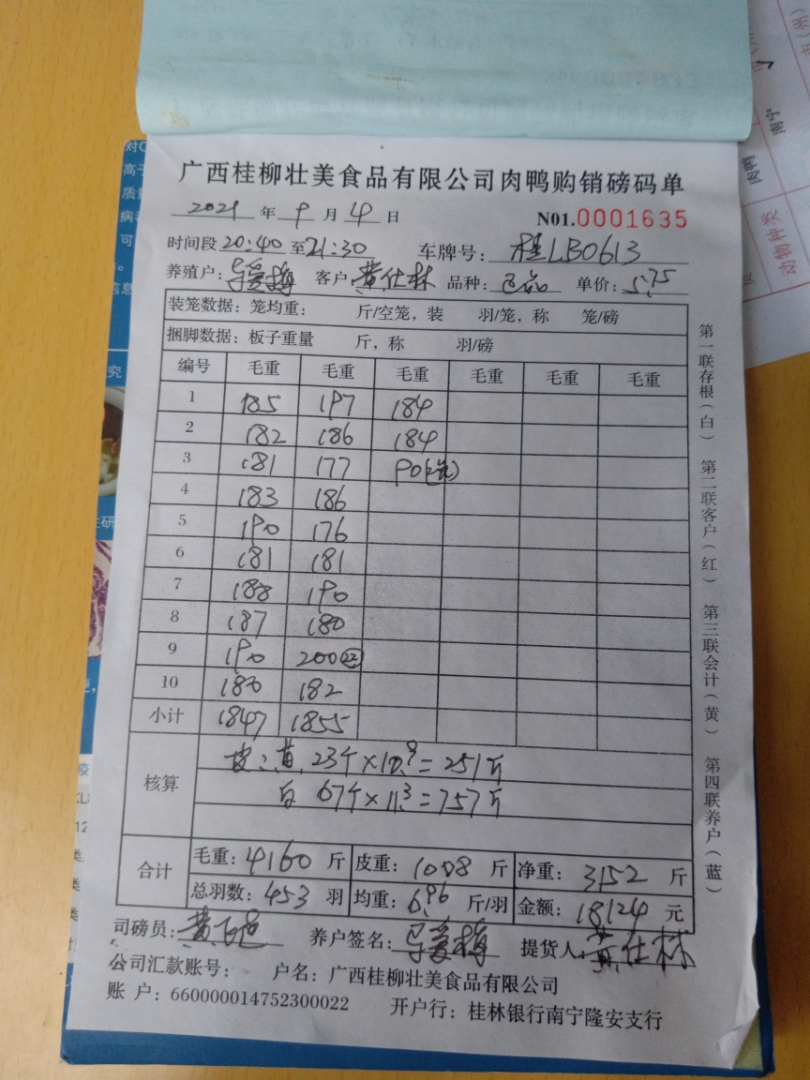 广西桂柳壮美食品有限公司肉鸭购销磅码单
2021 年 9 月 4 日 N01.0001635
时间段20:40至21:30 车牌号: 桂LB0613
养殖户: 客户:黄仕林 品种: 单价: 5.75
装笼数据: 笼均重: 斤/空笼, 装 羽/笼, 称 笼/磅
捆脚数据: 板子重量 斤, 称 羽/磅
编号 毛重 毛重 毛重 毛重 毛重 毛重
1 185 197 184
2 182 186 184
3 181 177 90
4 183 186
5 190 176
6 181 181
7 188 190
8 187 180
9 190 200
10 180 182
小计 1847 1855
核算 皮:黄 23个×10.9=251斤
白 67个×11.3=757斤
合计 毛重: 4160 斤 皮重: 1008 斤 净重: 3152 斤
总羽数: 453 羽 均重: 6.96 斤/羽 金额: 18124 元
司磅员: 养户签名: 提货人: 黄仕林
公司汇款账号: 户名: 广西桂柳壮美食品有限公司
账 户: 660000014752300022 开户行: 桂林银行南宁隆安支行
第一联存根(白) 第二联客户(红) 第三联会计(黄) 第四联养户(蓝)
南宁
动物种类